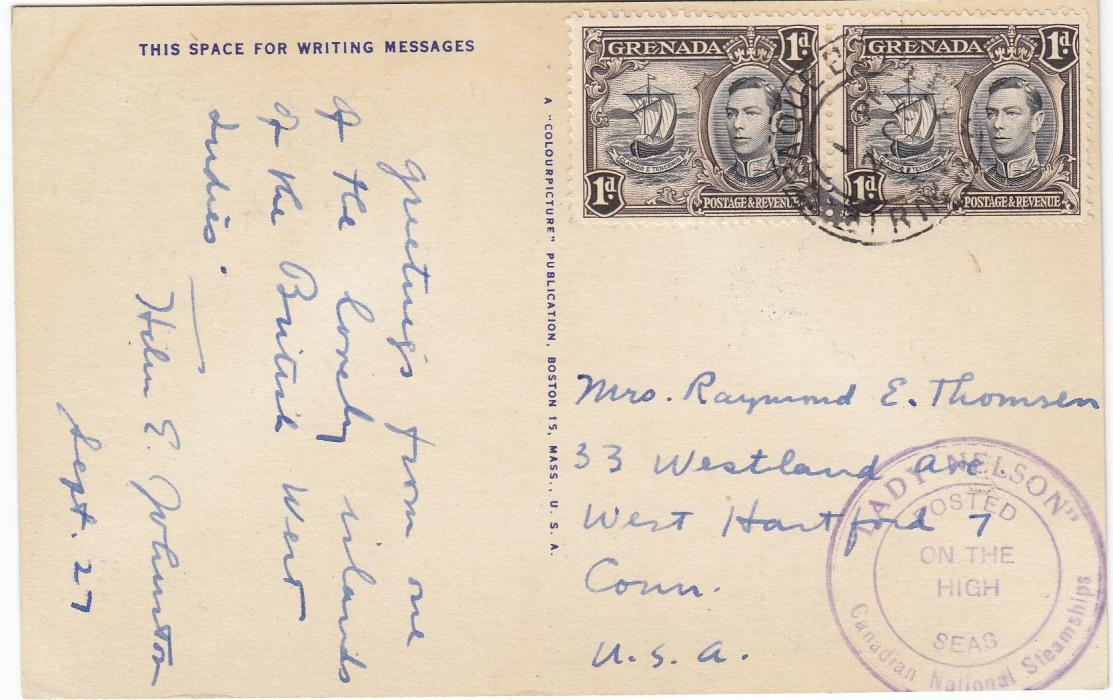 THIS SPACE FOR WRITING MESSAGES
Greetings from one
of the lovely islands
of the British West
Indies.
Helen E. Johnston
Sept. 27
A "COLOURPICTURE" PUBLICATION, BOSTON 15, MASS., U. S. A.
GRENADA 1d
CLARIOR E TENEBRIS
1d POSTAGE & REVENUE
GRENADA 1d
CLARIOR E TENEBRIS
1d POSTAGE & REVENUE
Mrs. Raymond E. Thomsen
33 Westland Ave.
West Hartford 7
Conn.
U.S.A.
LADY NELSON"
POSTED
ON THE
HIGH
SEAS
Canadian National Steamships